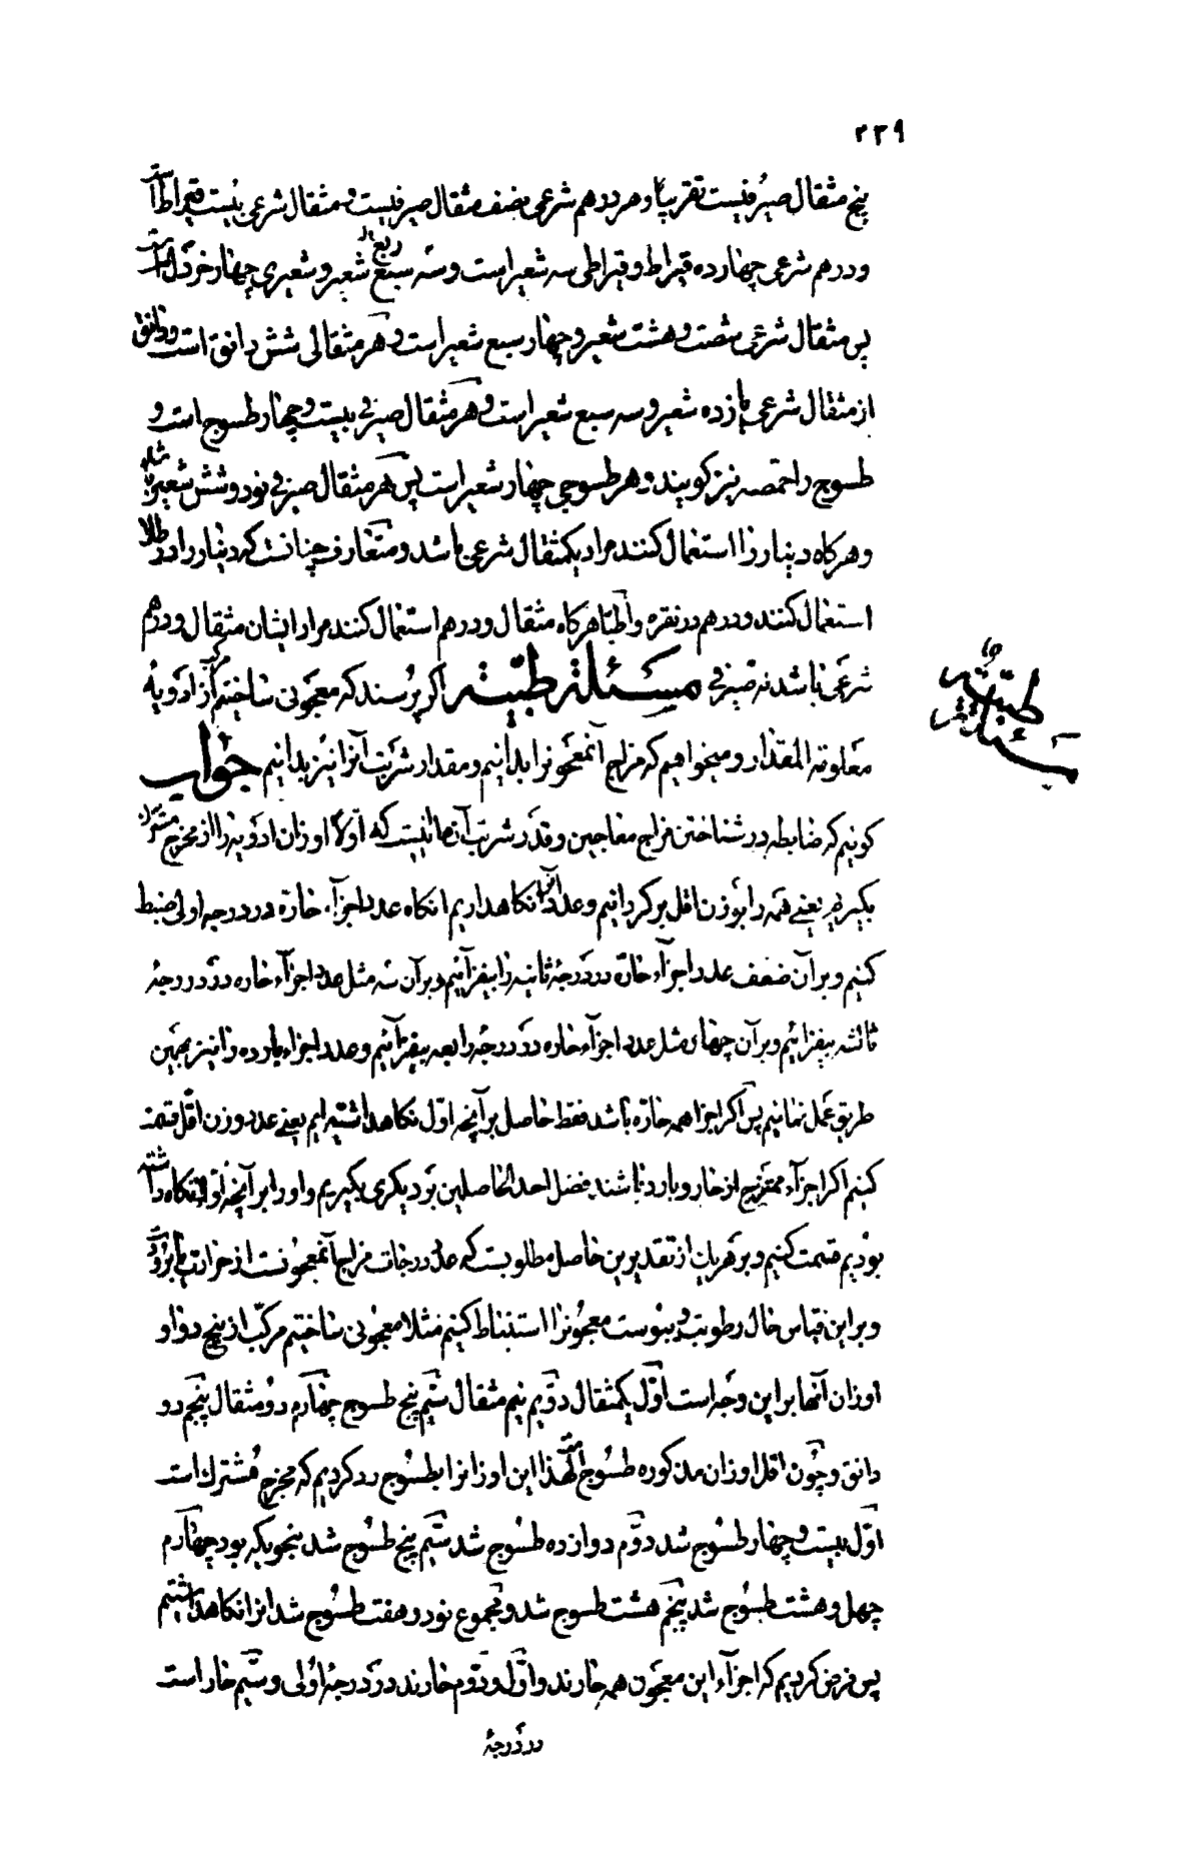 ۲۳۹
پنج مثقال صیرفیست تقریبا و هر درهم شرعی نصف مثقال صیرفیست و مثقال شرعی بیست قیراط است
و درهم شرعی چهارده قیراط و قیراطی سه شعیر است و سه سبع ربع شعیر و شعیری چهار خردل است
پس مثقال شرعی شصت و هشت شعیر و چهار سبع شعیر است و هر مثقالی شش دانق است و دانق
از مثقال شرعی یازده شعیر و سه سبع شعیر است و هر مثقال صیرفی بیست و چهار طسوج است و
طسوج را حمصه نیز گویند و هر طسوجی چهار شعیر است پس هر مثقال صیرفی نود و شش شعیره باشد
و هرگاه دینار را استعمال کنند مراد یکمثقال شرعی باشد و متعارف چنانست که دینار را در طلا
استعمال کنند و درهم در نقره و اطبا هرگاه مثقال و درهم استعمال کنند مراد ایشان مثقال و درهم
شرعی باشد نه صیرفی مسئلة طبیة اگر پرسند که معجونی ساختیم مرکب از ادویهٔ
معلومة المقدار و میخواهیم که مزاج آنمعجونرا بدانیم و مقدار شربت آنرا نیز بدانیم جواب
گوئیم که ضابطه در شناختن مزاج معاجین و قدر شربت آنها اینست که اولا اوزان ادویه را از مخرج مشترک
بگیریم یعنی همه را بوزن اقل برگردانیم و عدد آنرا نگاهداریم انگاه عدد اجزاء حارّه در درجه اولی ضبط
کنیم و بر آن ضعف عدد اجزاء حارّه در درجهٔ ثانیه را بیفزائیم و بر آن سه مثل عدد اجزاء حاره در درجهٔ
ثالثه بیفزائیم و بر آن چهار مثل عدد اجزاء حاره در درجهٔ رابعه بیفزائیم و عدد اجزاء بارده را نیز بهمین
طریق عمل نمائیم پس اگر اجزا همه حارّه باشد فقط حاصل بر آنچه اوّل نگاهداشته ایم یعنی عدد وزن اقل قسمت
کنیم اگر اجزاء ممتزج از حار و بارد باشند فضل احد الحاصلین بر دیگری بگیریم و او را بر آنچه اولا نگاه داشته
بودیم قسمت کنیم و بر هر یک از تقدیرین حاصل مطلوبست که عدد درجات مزاج آنمعجونست از حرارت یا برودت
و بر این قیاس حال رطوبت و یبوست معجونرا استنباط کنیم مثلا معجونی ساختیم مرکّب از پنج دوا و
اوزان آنها بر این وجه است اوّل یکمثقال دوّیم نیم مثقال سیّم پنج طسوج چهارم دو مثقال پنجم دو
دانق و چون اقل اوزان مذکوره طسوج است لهذا این اوزانرا بطسوج رد کردیم که مخرج مشترک است
اوّل بیست و چهار طسوج شد دوّم دوازده طسوج شد سیّم پنج طسوج شد بنحویکه بود چهارم
چهل و هشت طسوج شد پنجم هشت طسوج شد و مجموع نود و هفت طسوج شد انرا نگاهداشتیم
پس فرض کردیم که اجزاء این معجون همه حارند و اوّل و دوّم حارند در درجهٔ اولی و سیّم حار است
در درجهٔ
مسئلة طبیة